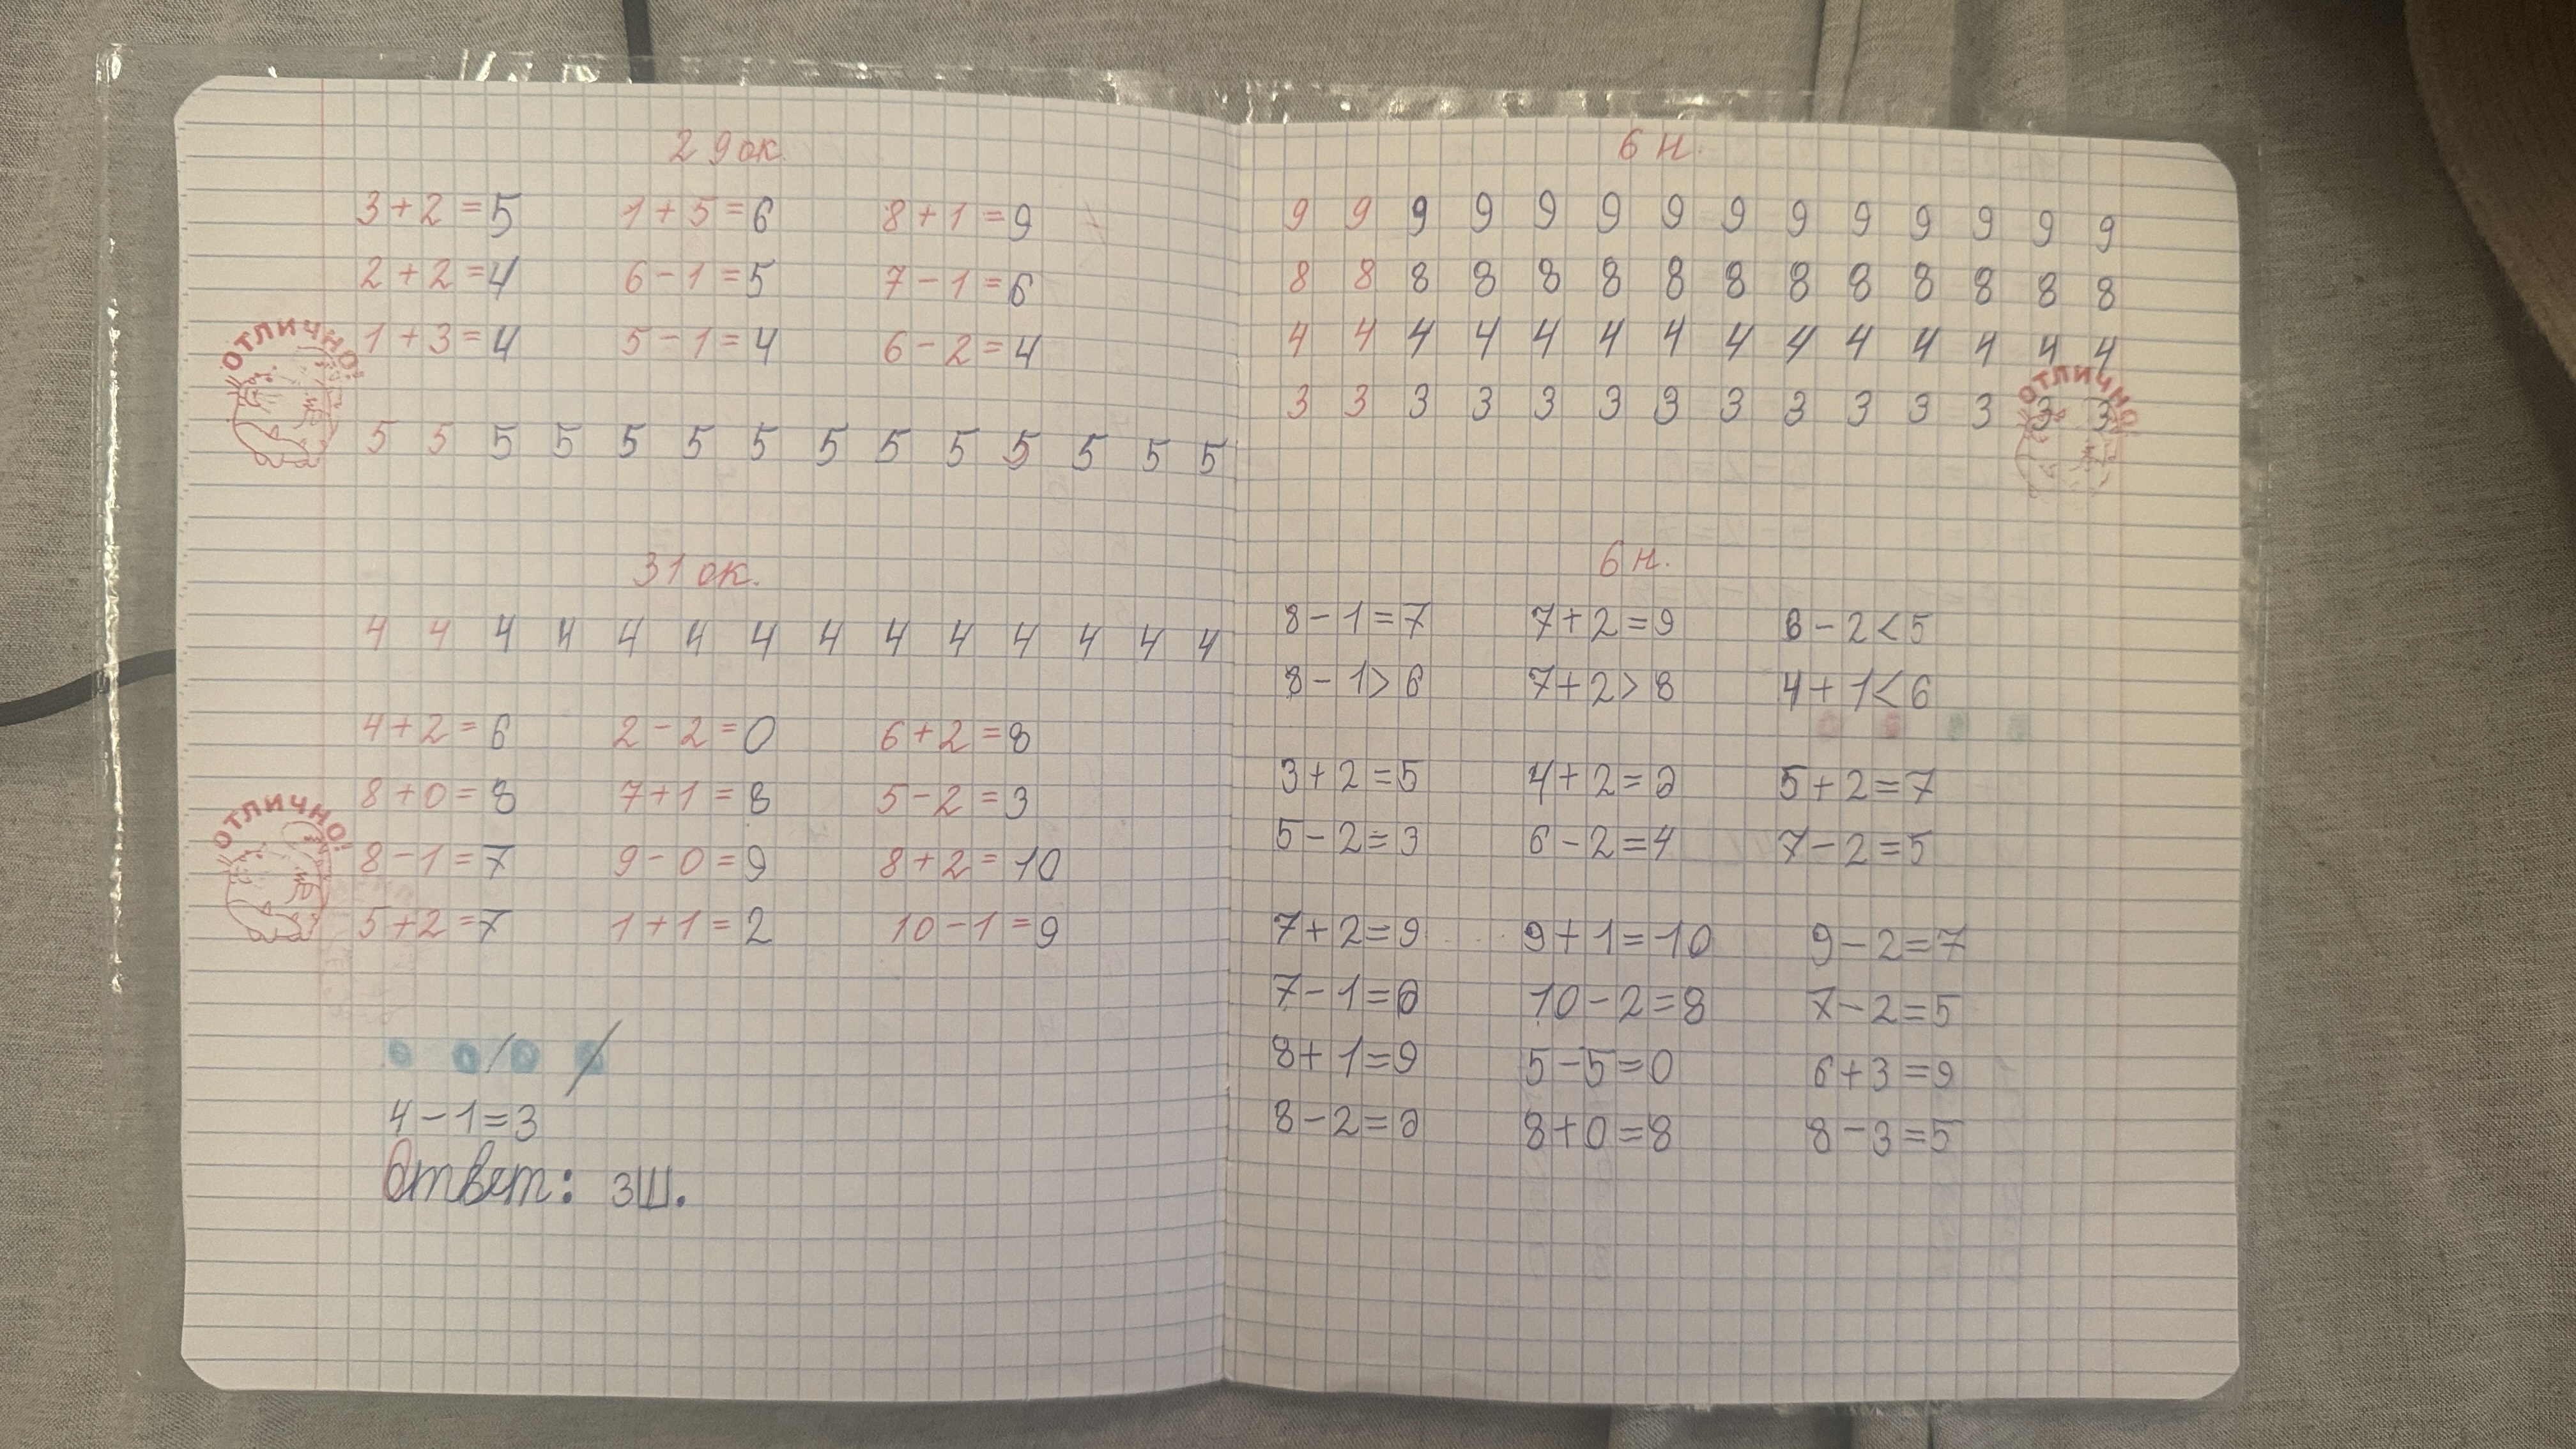 29 ок.
3+2=5 1+5=6 8+1=9
2+2=4 6-1=5 7-1=6
1+3=4 5-1=4 6-2=4
ОТЛИЧНО!
5 5 5 5 5 5 5 5 5 5 5 5 5 5
31 ок.
4 4 4 4 4 4 4 4 4 4 4 4 4 4
4+2=6 2-2=0 6+2=8
8+0=8 7+1=8 5-2=3
ОТЛИЧНО!
8-1=7 9-0=9 8+2=10
5+2=7 1+1=2 10-1=9
4-1=3
Ответ: 3ш.
6 н.
9 9 9 9 9 9 9 9 9 9 9 9 9 9
8 8 8 8 8 8 8 8 8 8 8 8 8 8
4 4 4 4 4 4 4 4 4 4 4 4 4 4
3 3 3 3 3 3 3 3 3 3 3 3 3 3
ОТЛИЧНО!
6 н.
8-1=7 7+2=9 6-2<5
8-1>6 7+2>8 4+1<6
3+2=5 4+2=6 5+2=7
5-2=3 6-2=4 7-2=5
7+2=9 9+1=10 9-2=7
7-1=6 10-2=8 7-2=5
8+1=9 5-5=0 6+3=9
8-2=6 8+0=8 8-3=5